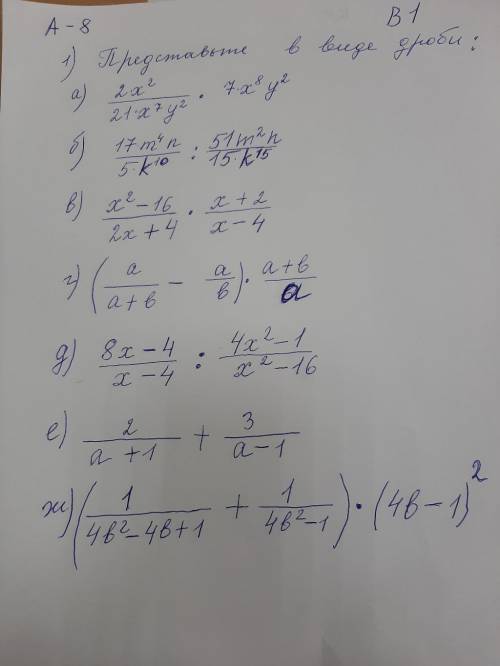 А-8 В1
1) Представьте в виде дроби:
а) 2x²/(21·x⁷y²) · 7x⁸y²
б) 17m⁴n/(5·k¹⁰) : 51m²n/(15·k¹⁵)
в) (x²-16)/(2x+4) · (x+2)/(x-4)
г) (a/(a+b) - a/b) · (a+b)/a
д) (8x-4)/(x-4) : (4x²-1)/(x²-16)
е) 2/(a+1) + 3/(a-1)
ж) (1/(4b²-4b+1) + 1/(4b²-1)) · (4b-1)²